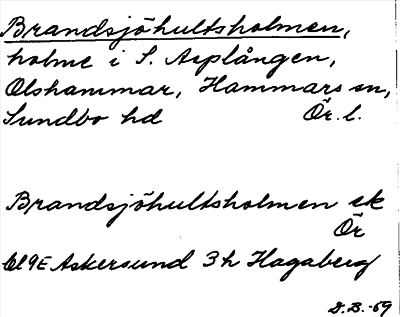 Brandsjöhultsholmen,
holme i S. Asplången,
Olshammar, Hammars sn,
Sundbo hd Ör. l.
Brandsjöhultsholmen ek
Ör
9E Askersund 3h Hagaberg
D.B.-69